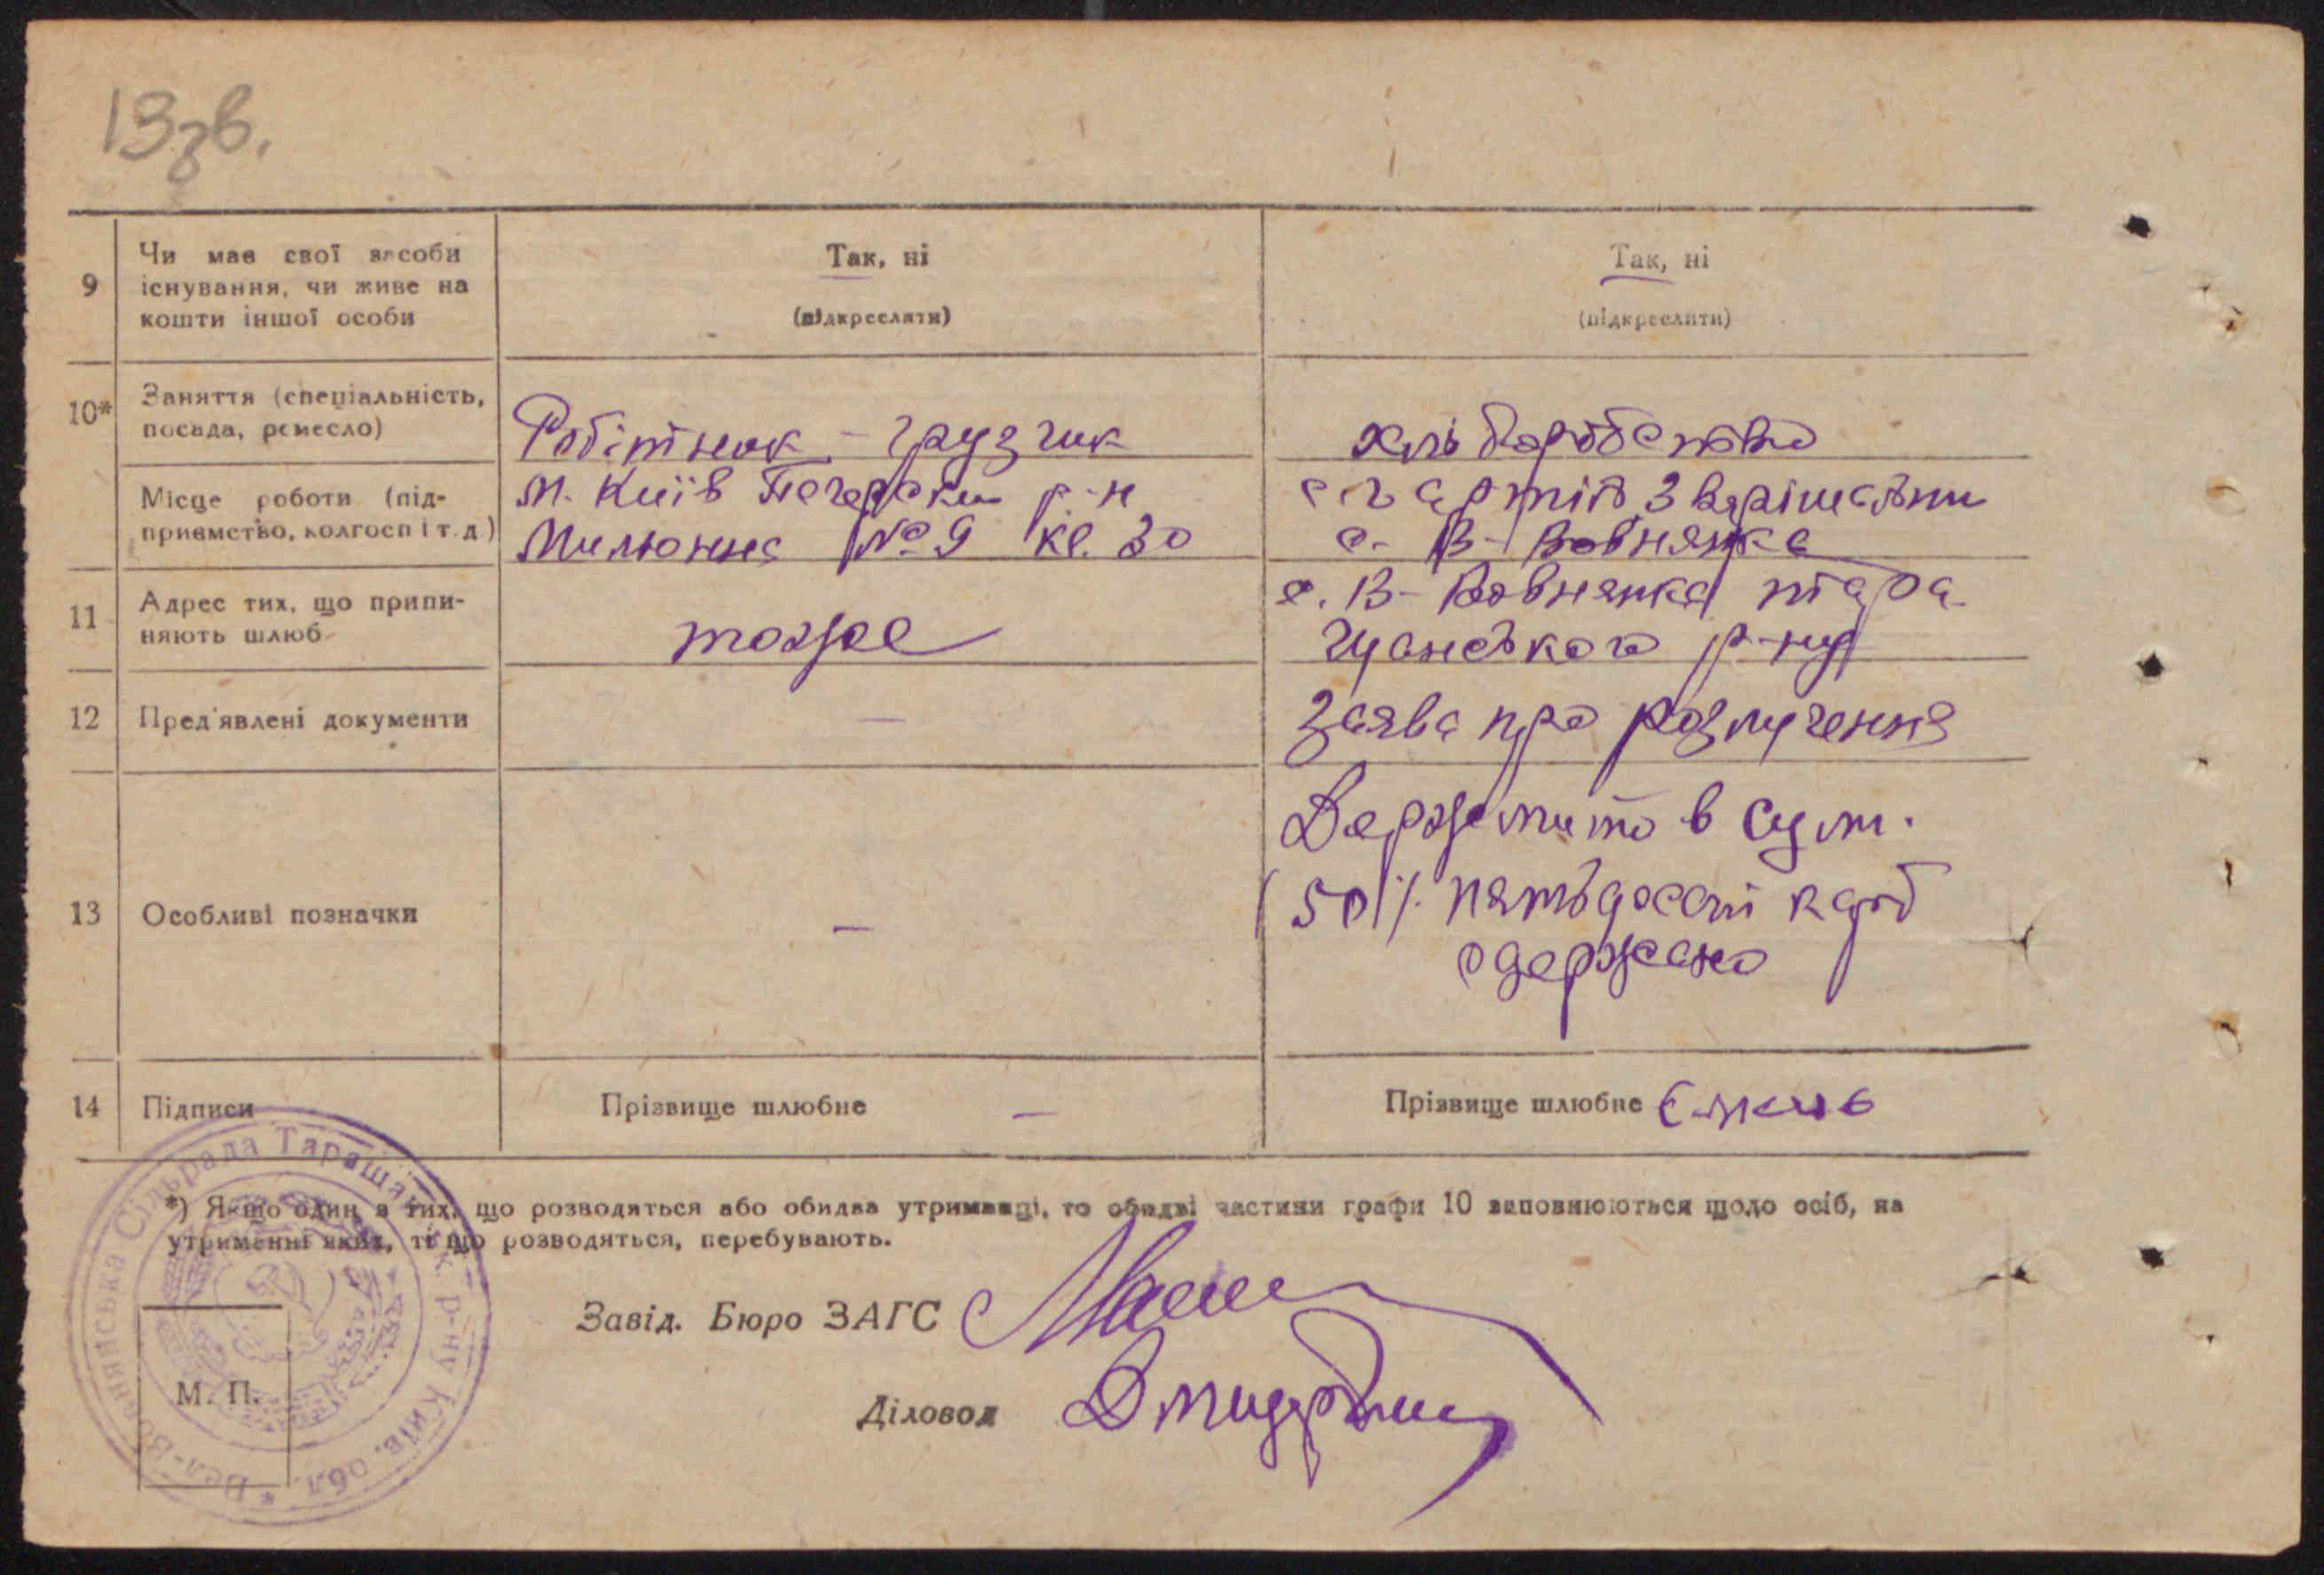 13зв.
9
Чи має свої засоби
існування, чи живе на
кошти іншої особи
Так, ні
(підкреслити)
Так, ні
(підкреслити)
10*
Заняття (спеціальність,
посада, ремесло)
Робітник - грузчик
хліборобство
Місце роботи (під-
приємство, колгосп і т. д.)
м. Київ Печерськи р-н
№ 9 кв. 30
с г артіль
с. В-Вовнянка
11
Адрес тих, що припи-
няють шлюб
тоже
с. В-Вовнянка тара-
щанського р-ну
12
Пред'явлені документи
—
Заява про розлучення
13
Особливі позначки
—
Держмито в сум.
50 % пятьдесят карб
одержано
14
Підписи
Прізвище шлюбне —
Прізвище шлюбне
*) Якщо один з тих, що розводяться або обидва утриманці, то обидві частини графи 10 заповнюються щодо осіб, на
утриманні яких, ті що розводяться, перебувають.
Завід. Бюро ЗАГС
Діловод
М. П.
Вел-Вовнянська Сільрада Таращанськ. р-ну Київ. обл. *